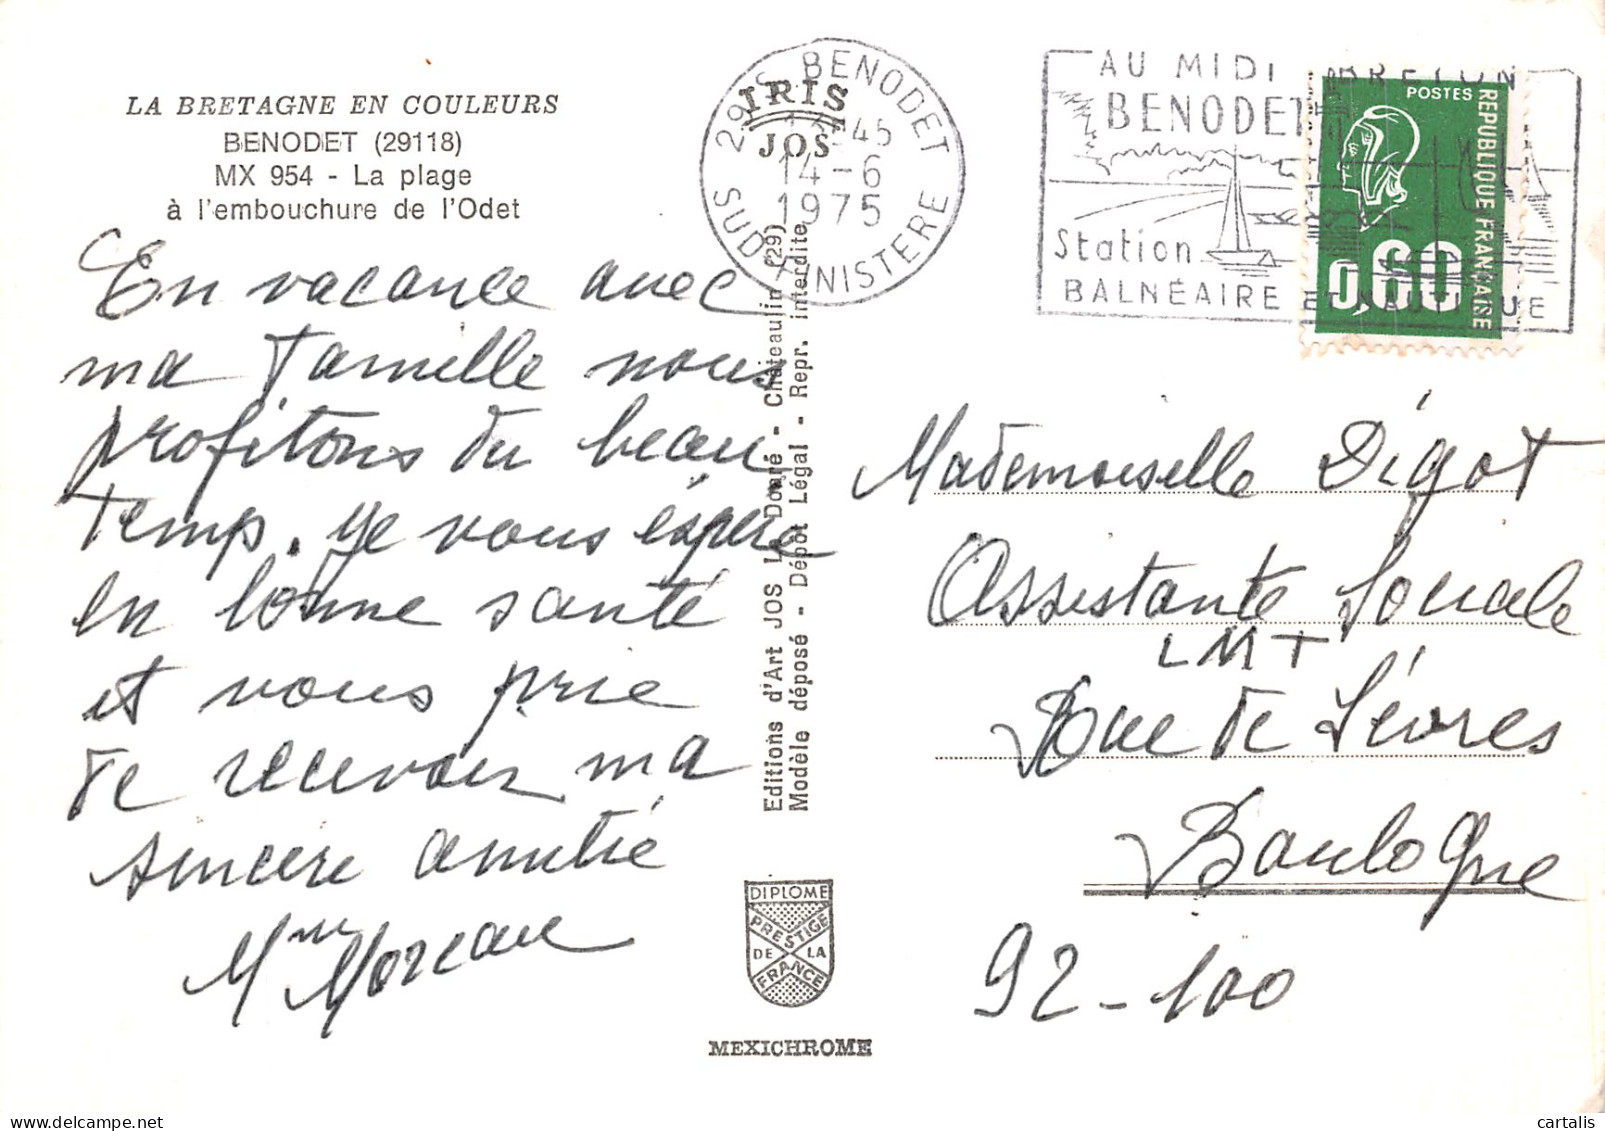 LA BRETAGNE EN COULEURS
BENODET (29118)
MX 954 - La plage
à l'embouchure de l'Odet
En vacance avec
ma famille nous
profitons du beau
temps. je vous éspère
en bonne santé
et vous prie
de recevoir ma
sincère amitié
Mme Moreau
IRIS
JOS
BENODET
SUD-FINISTERE
45
14-6
1975
Editions d'Art JOS Le Doaré - Châteaulin (29)
Modèle déposé - Dépôt Légal - Repr. interdite
DIPLOME
PRESTIGE
DE LA
FRANCE
MEXICHROME
AU MIDI BRETON
BENODET
Station
BALNÉAIRE ET NAUTIQUE
POSTES
REPUBLIQUE FRANÇAISE
0,60
Mademoiselle Digot
Assistante Sociale
LMT
Rue de Sèvres
Boulogne
92-100
cartalis
www.delcampe.net